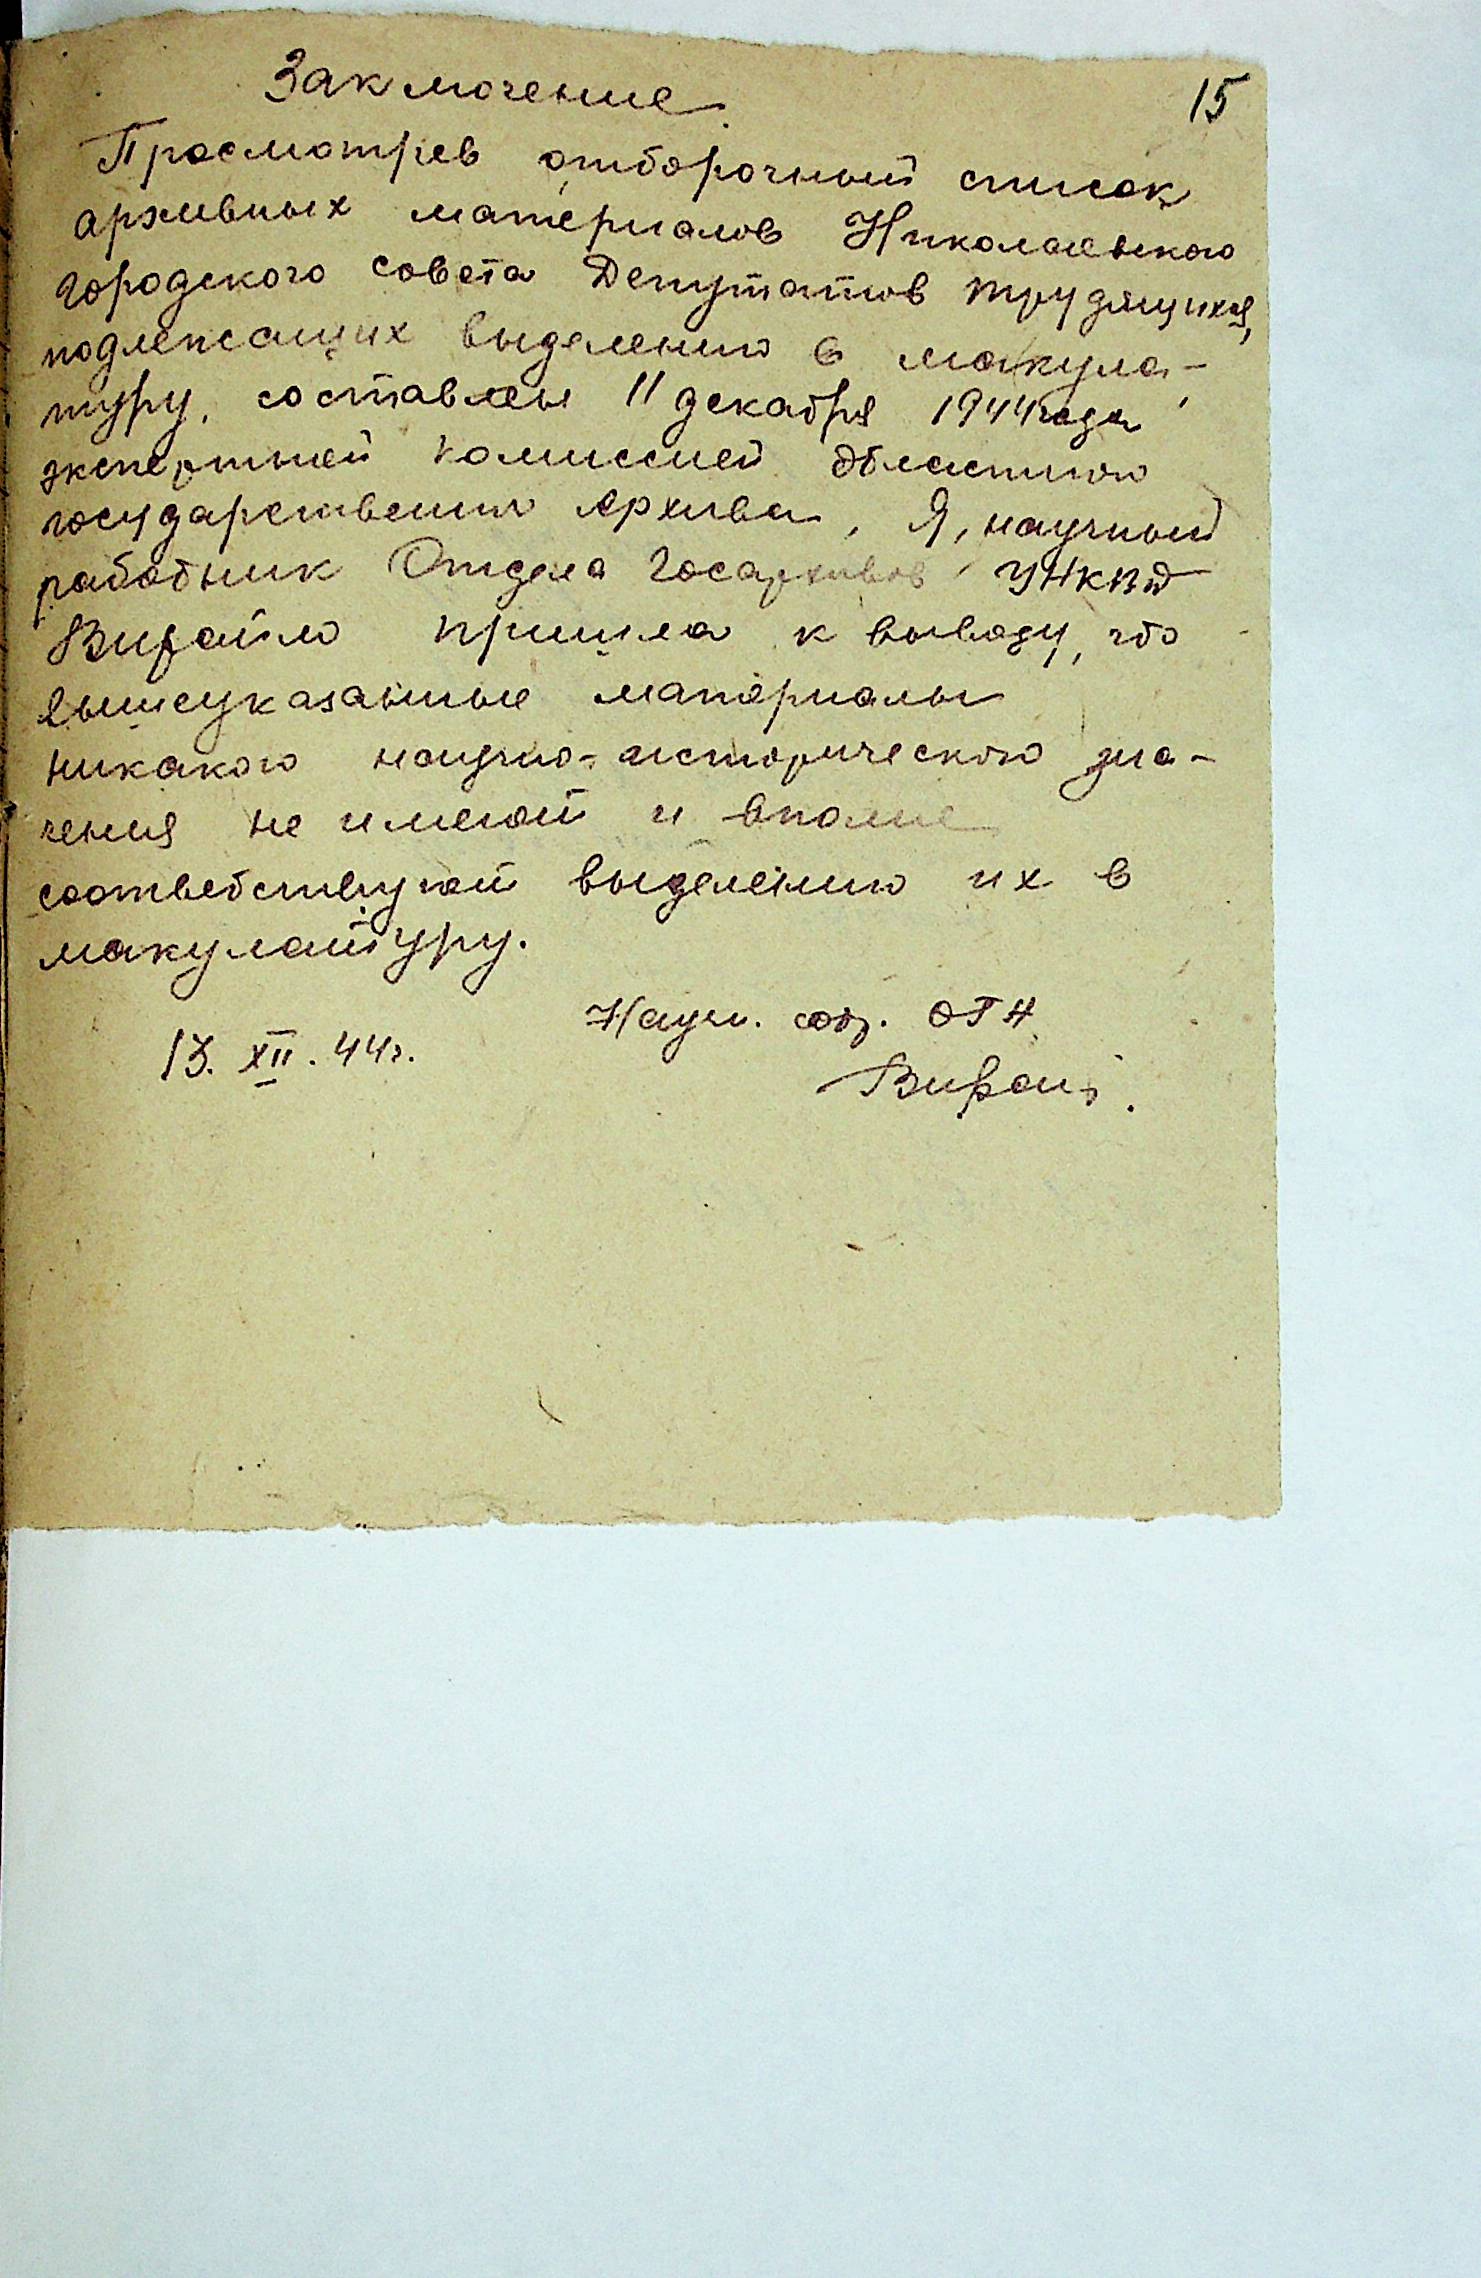 15
Заключение.
Просмотрев отборочный список
архивных материалов Николаевского
городского совета Депутатов трудящихся,
подлежащих выделению в макула-
туру, составлен 11 декабря 1944 года
экспертной комиссией Областного
государственного Архива, Я, научный
работник Отдела Госархивов УНКВД
пришла к выводу, что
вышеуказанные материалы
никакого научно-исторического зна-
чения не имеют и вполне
соответствуют выделению их в
макулатуру.
Научн. сотр. ОГА
13. XII. 44г.